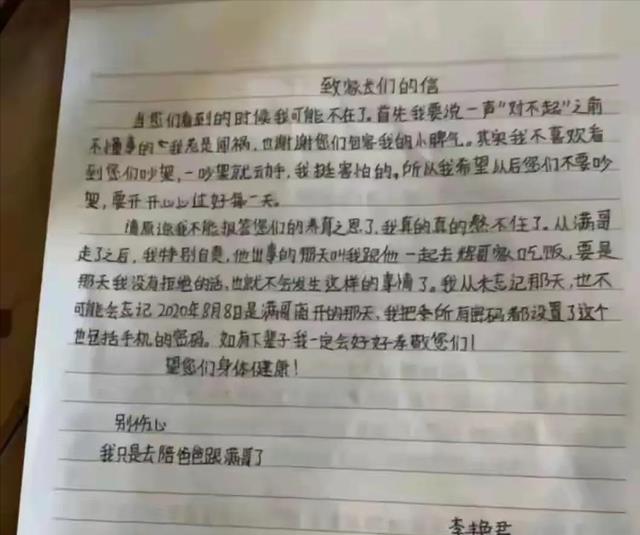 致家长们的信
当您们看到的时候我可能不在了。首先我要说一声"对不起"之前
不懂事的我老是闯祸,也谢谢您们包容我的小脾气。其实我不喜欢看
到您们吵架,一吵架就动手,我挺害怕的。所从我希望从后您们不要吵
架,要开开心心过好每一天。
请原谅我不能报答您们的养育之恩了,我真的真的憋不住了。从满哥
走了之后,我特别自责,他出事的那天叫我跟他一起去辉哥家吃饭,要是
那天我没有拒绝的话,也就不会发生这样的事情了。我从未忘记那天,也不
可能会忘记2020年8月8日是满哥离开的那天,我把所有密码都设置了这个
也包括手机的密码。如有下辈子我一定会好好孝敬您们!
望您们身体健康!
别伤心
我只是去陪爸爸跟满哥了
李艳君